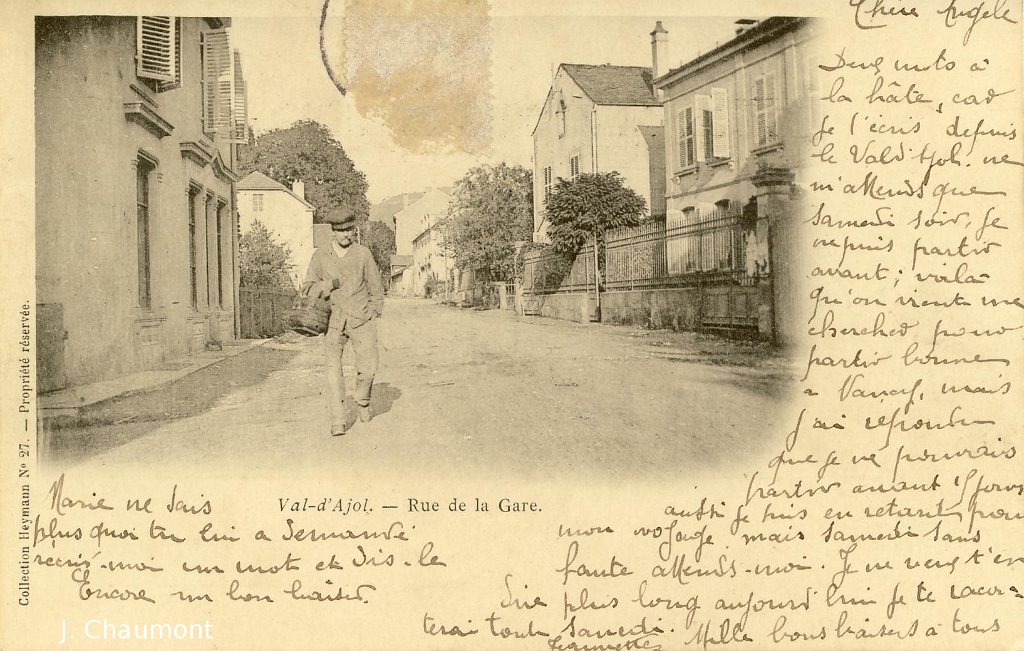 Chère Angèle
Deux mots à
la hâte, car
je t'écris depuis
le Val d'Ajol. ne
m'attends que
samedi soir, je
ne puis partir
avant; voilà
qu'on vient me
chercher pour
partir bonne
à Nancy, mais
j'ai répondu
que je ne pouvais
partir avant 8 jours
aussi je suis en retard pour
mon voyage mais samedi sans
faute attends-moi. Je ne veux t'en
dire plus long aujourd'hui je te racon-
terai tout samedi. Mille bons baisers à tous
Jeannette
Marie ne sais
plus quoi tu lui a demandé
récris-moi un mot et dis-le
Encore un bon baiser.
Val-d'Ajol. — Rue de la Gare.
Collection Heymann Nº 27. — Propriété réservée.
J. Chaumont